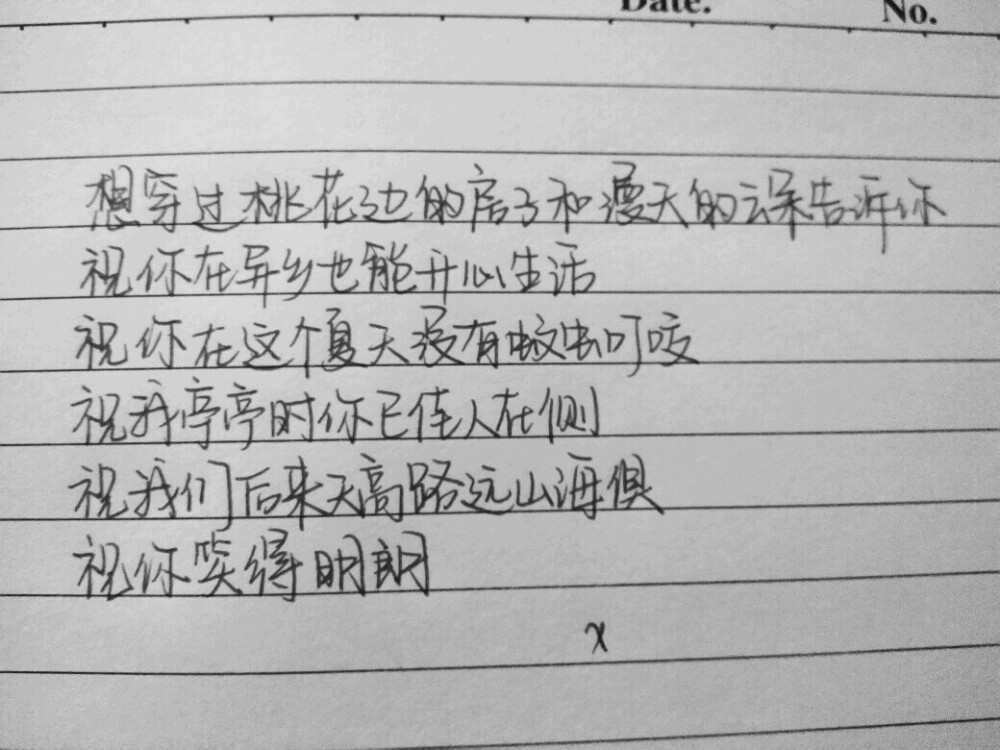 Date.
No.
想穿过桃花边的房子和漫天的云朵告诉你
祝你在异乡也能开心生活
祝你在这个夏天没有蚊虫叮咬
祝我亭亭时你已佳人在侧
祝我们后来天高路远山海俱
祝你笑得明朗
x